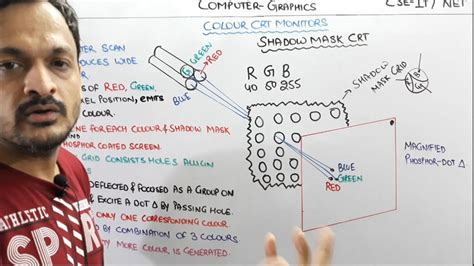 COMPUTER-GRAPHICS
CSE-IT/ NET
COLOUR CRT MONITORS
SHADOW MASK CRT
GREEN
RED
G
BLUE
R G B
40 50 255
SHADOW
MASK GRID
TER SCAN
DUCES WIDE
S OF RED, GREEN,
XEL POSITION, EMITS
COLOUR.
ONE FOR EACH COLOUR & SHADOW MASK
PHOSPHOR COATED SCREEN.
GRID CONSISTS HOLES ALLIGN
DEFLECTED & FOCUSED AS A GROUP ON
& EXCITE A DOT Δ BY PASSING HOLE.
ONLY ONE CORRESPONDING COLOUR.
D BY COMBINATION OF 3 COLOURS
MORE COLOUR IS GENERATED.
MAGNIFIED
PHOSPHOR-DOT Δ
BLUE
GREEN
RED
ATHLETIC
SPOR